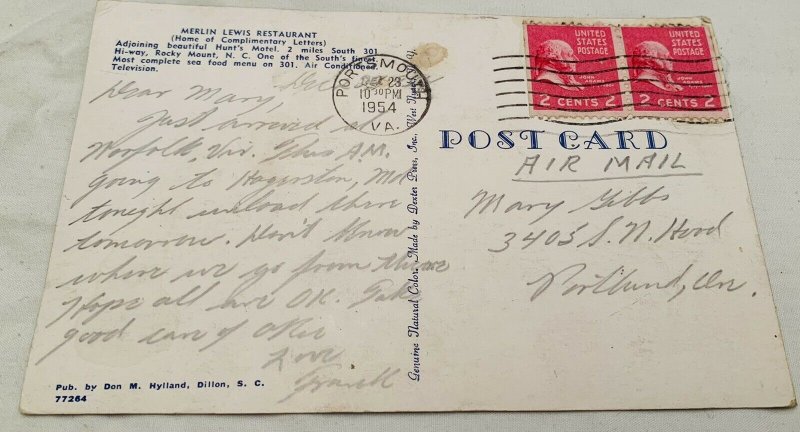 MERLIN LEWIS RESTAURANT
(Home of Complimentary Letters)
Adjoining beautiful Hunt's Motel. 2 miles South 301
Hi-way, Rocky Mount, N. C. One of the South's finest.
Most complete sea food menu on 301. Air Conditioned.
Television.
Dec
Dear Mary,
Just arrived at
Norfolk, Vir. This A.M.
going to Hagerston, Md
tonight unload there
tomorrow. Don't Know
where we go from there
Hope all are OK. Take
good care of
Love
Frank
Pub. by Don M. Hylland, Dillon, S. C.
77264
Genuine Natural Color. Made by Dexter Press, Inc., West
PORTSMOUTH
DEC 23
10 30 PM
1954
VA.
UNITED
STATES
POSTAGE
JOHN
ADAMS
2 CENTS 2
UNITED
STATES
POSTAGE
JOHN
ADAMS
2 CENTS 2
POST CARD
AIR MAIL
Mary Gibbs
3405 S. N. Hood
Portland, Ore.